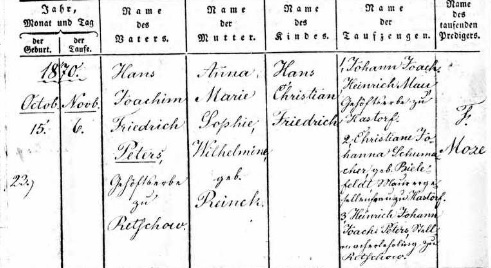 Jahr,
Monat und Tag
der Geburt.
der Taufe.
Name des Vaters.
Name der Mutter.
Name des Kindes.
Namen der Taufzeugen.
Name des taufenden Predigers.
1870.
Octob. Novb.
15. 6.
23.
Hans
Joachim
Friedrich
Peters,
Gehöftserbe
zu
Retschow.
Anna
Marie
Sophie,
Wilhelmine
geb.
Reinck.
Hans
Christian
Friedrich
1, Johann Joach.
Heinrich Mau
Gehöftserbe zu
Kastorf.
2, Christiane Jo-
hanna Schuma-
cher, geb. Biele-
feldt Maurerge-
sellenfrau zu Kastorf.
3, Heinrich Johann
Joach. Peters, Stell-
macherlehrling zu
Retschow.
F.